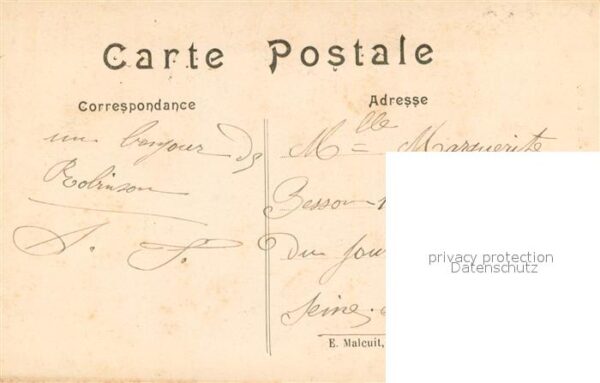 Carte Postale
Correspondance
Adresse
un bonjour de
Robinson
Mlle Marguerite
Besson
du
Seine
E. Malcuit,
privacy protection
Datenschutz